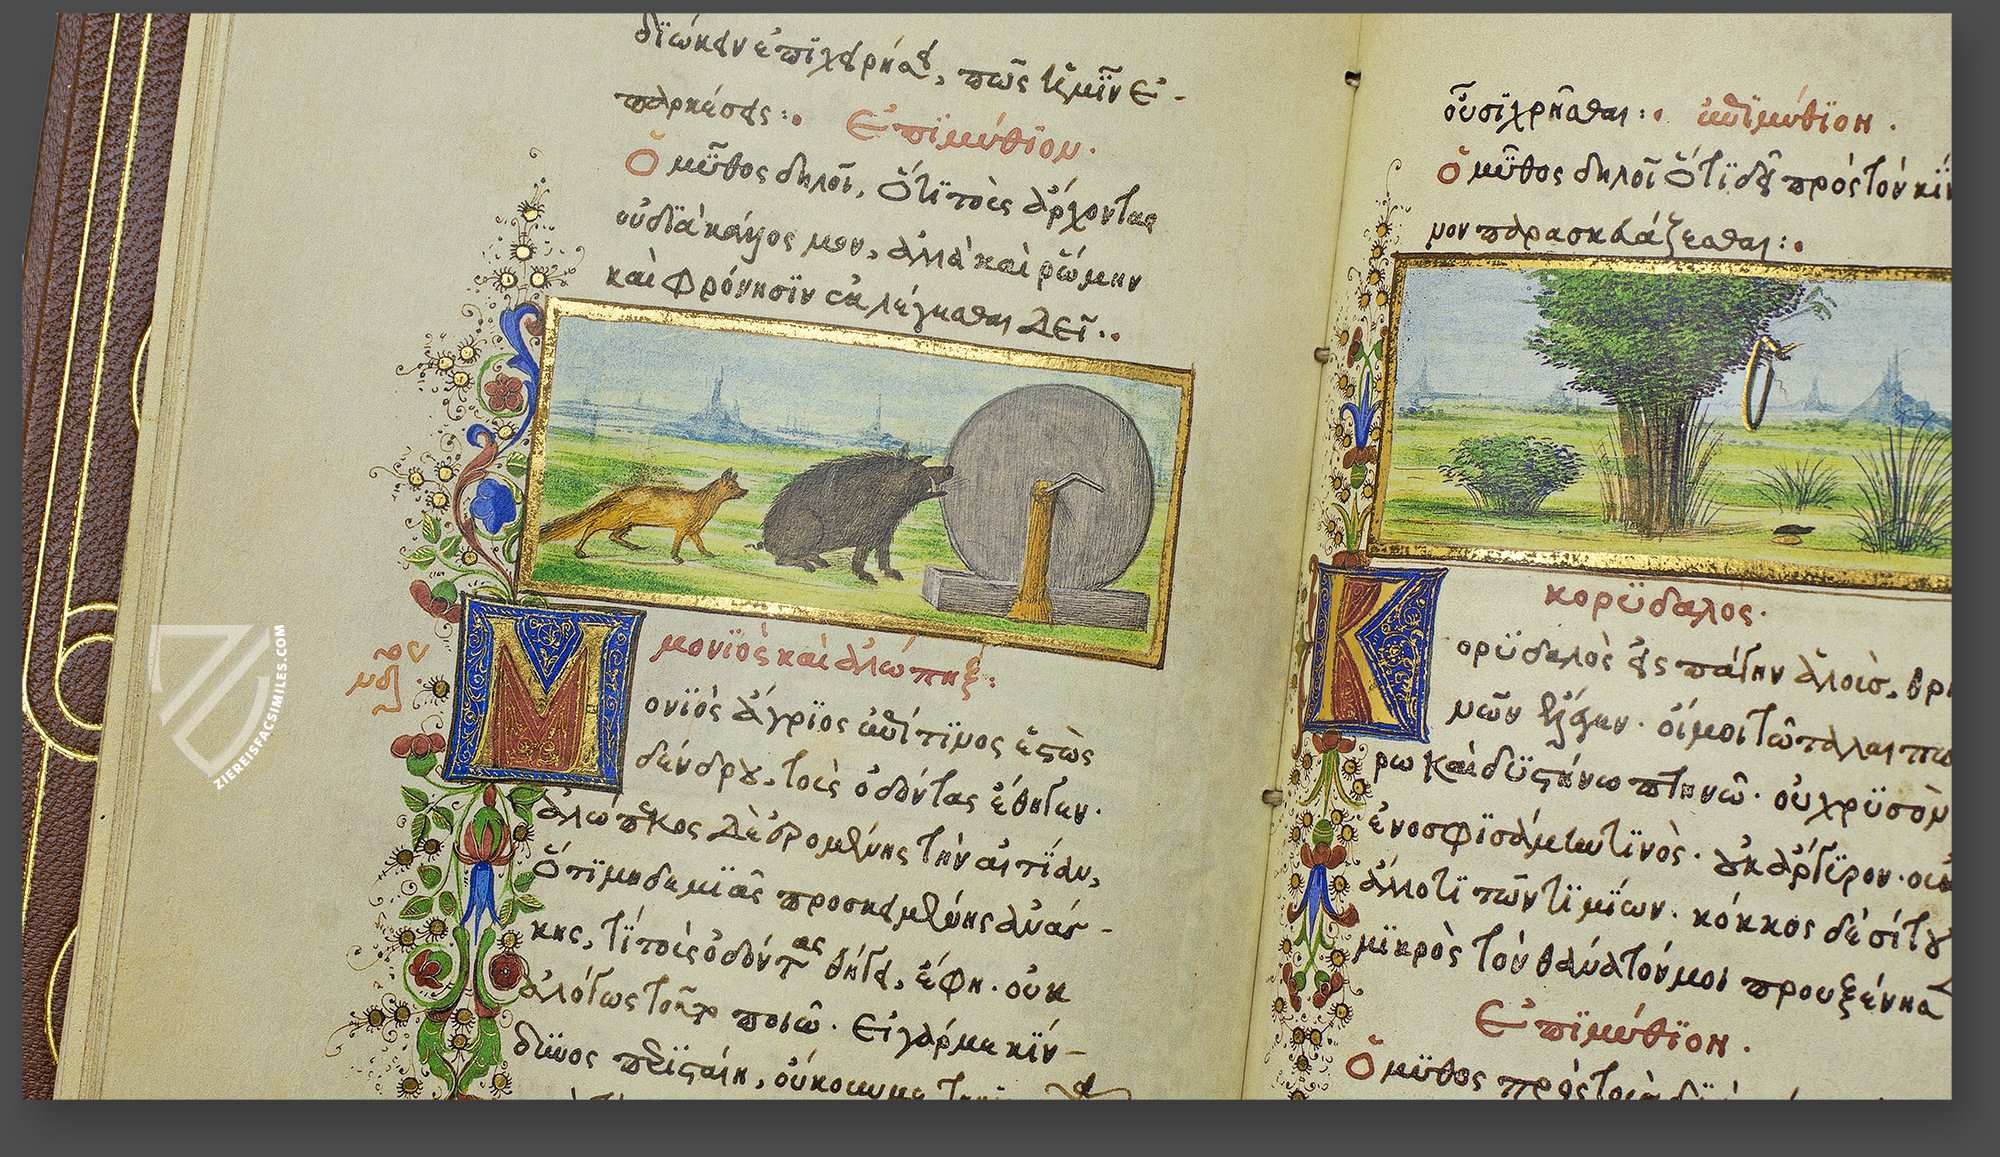 διώκειν ἐπιχειρήσει, πῶς ἡμῖν ἐ-
παρκέσεις:
Ἐπιμύθιον.
Ὁ μῦθος δηλοῖ, ὅτι τοὺς ἄρχοντας
οὐ διὰ κάλλος μόνον, ἀλλὰ καὶ ῥώμην
καὶ φρόνησιν ἐκλέγεσθαι δεῖ:
μονιὸς καὶ ἀλώπηξ:
Μονιὸς ἄγριος ἐπί τινος ἑστὼς
δένδρου, τοὺς ὀδόντας ἔθηγεν.
ἀλώπεκος δὲ ἐρομένης τὴν αἰτίαν,
ὅτι μηδεμιᾶς προσκειμένης ἀνάγ-
κης, τί τοὺς ὀδόντας θήγει, ἔφη. οὐκ
ἀλόγως τοῦτο ποιῶ. εἰ γάρ με κίν-
δυνος περισταίη, οὐκ
ZIEREISFACSIMILES.COM
οὖσι χρῆσθαι:
ἐπιμύθιον.
Ὁ μῦθος δηλοῖ ὅτι δεῖ πρὸς τὸν κίν
μον παρασκευάζεσθαι:
κορύδαλος.
Κορύδαλος εἰς πάγην ἁλοὺς, θρη
νῶν ἔλεγεν. οἴμοι τῷ ταλαιπώ
ρῳ καὶ δυστήνῳ πτηνῷ. οὐ χρυσὸν
ἐνοσφισάμην τινὸς. οὐκ ἄργυρον. οὐκ
ἄλλο τι τῶν τιμίων. κόκκος δὲ σίτου
μικρὸς τὸν θάνατόν μοι προυξένησε
Ἐπιμύθιον.
Ὁ μῦθος πρὸς τοὺς